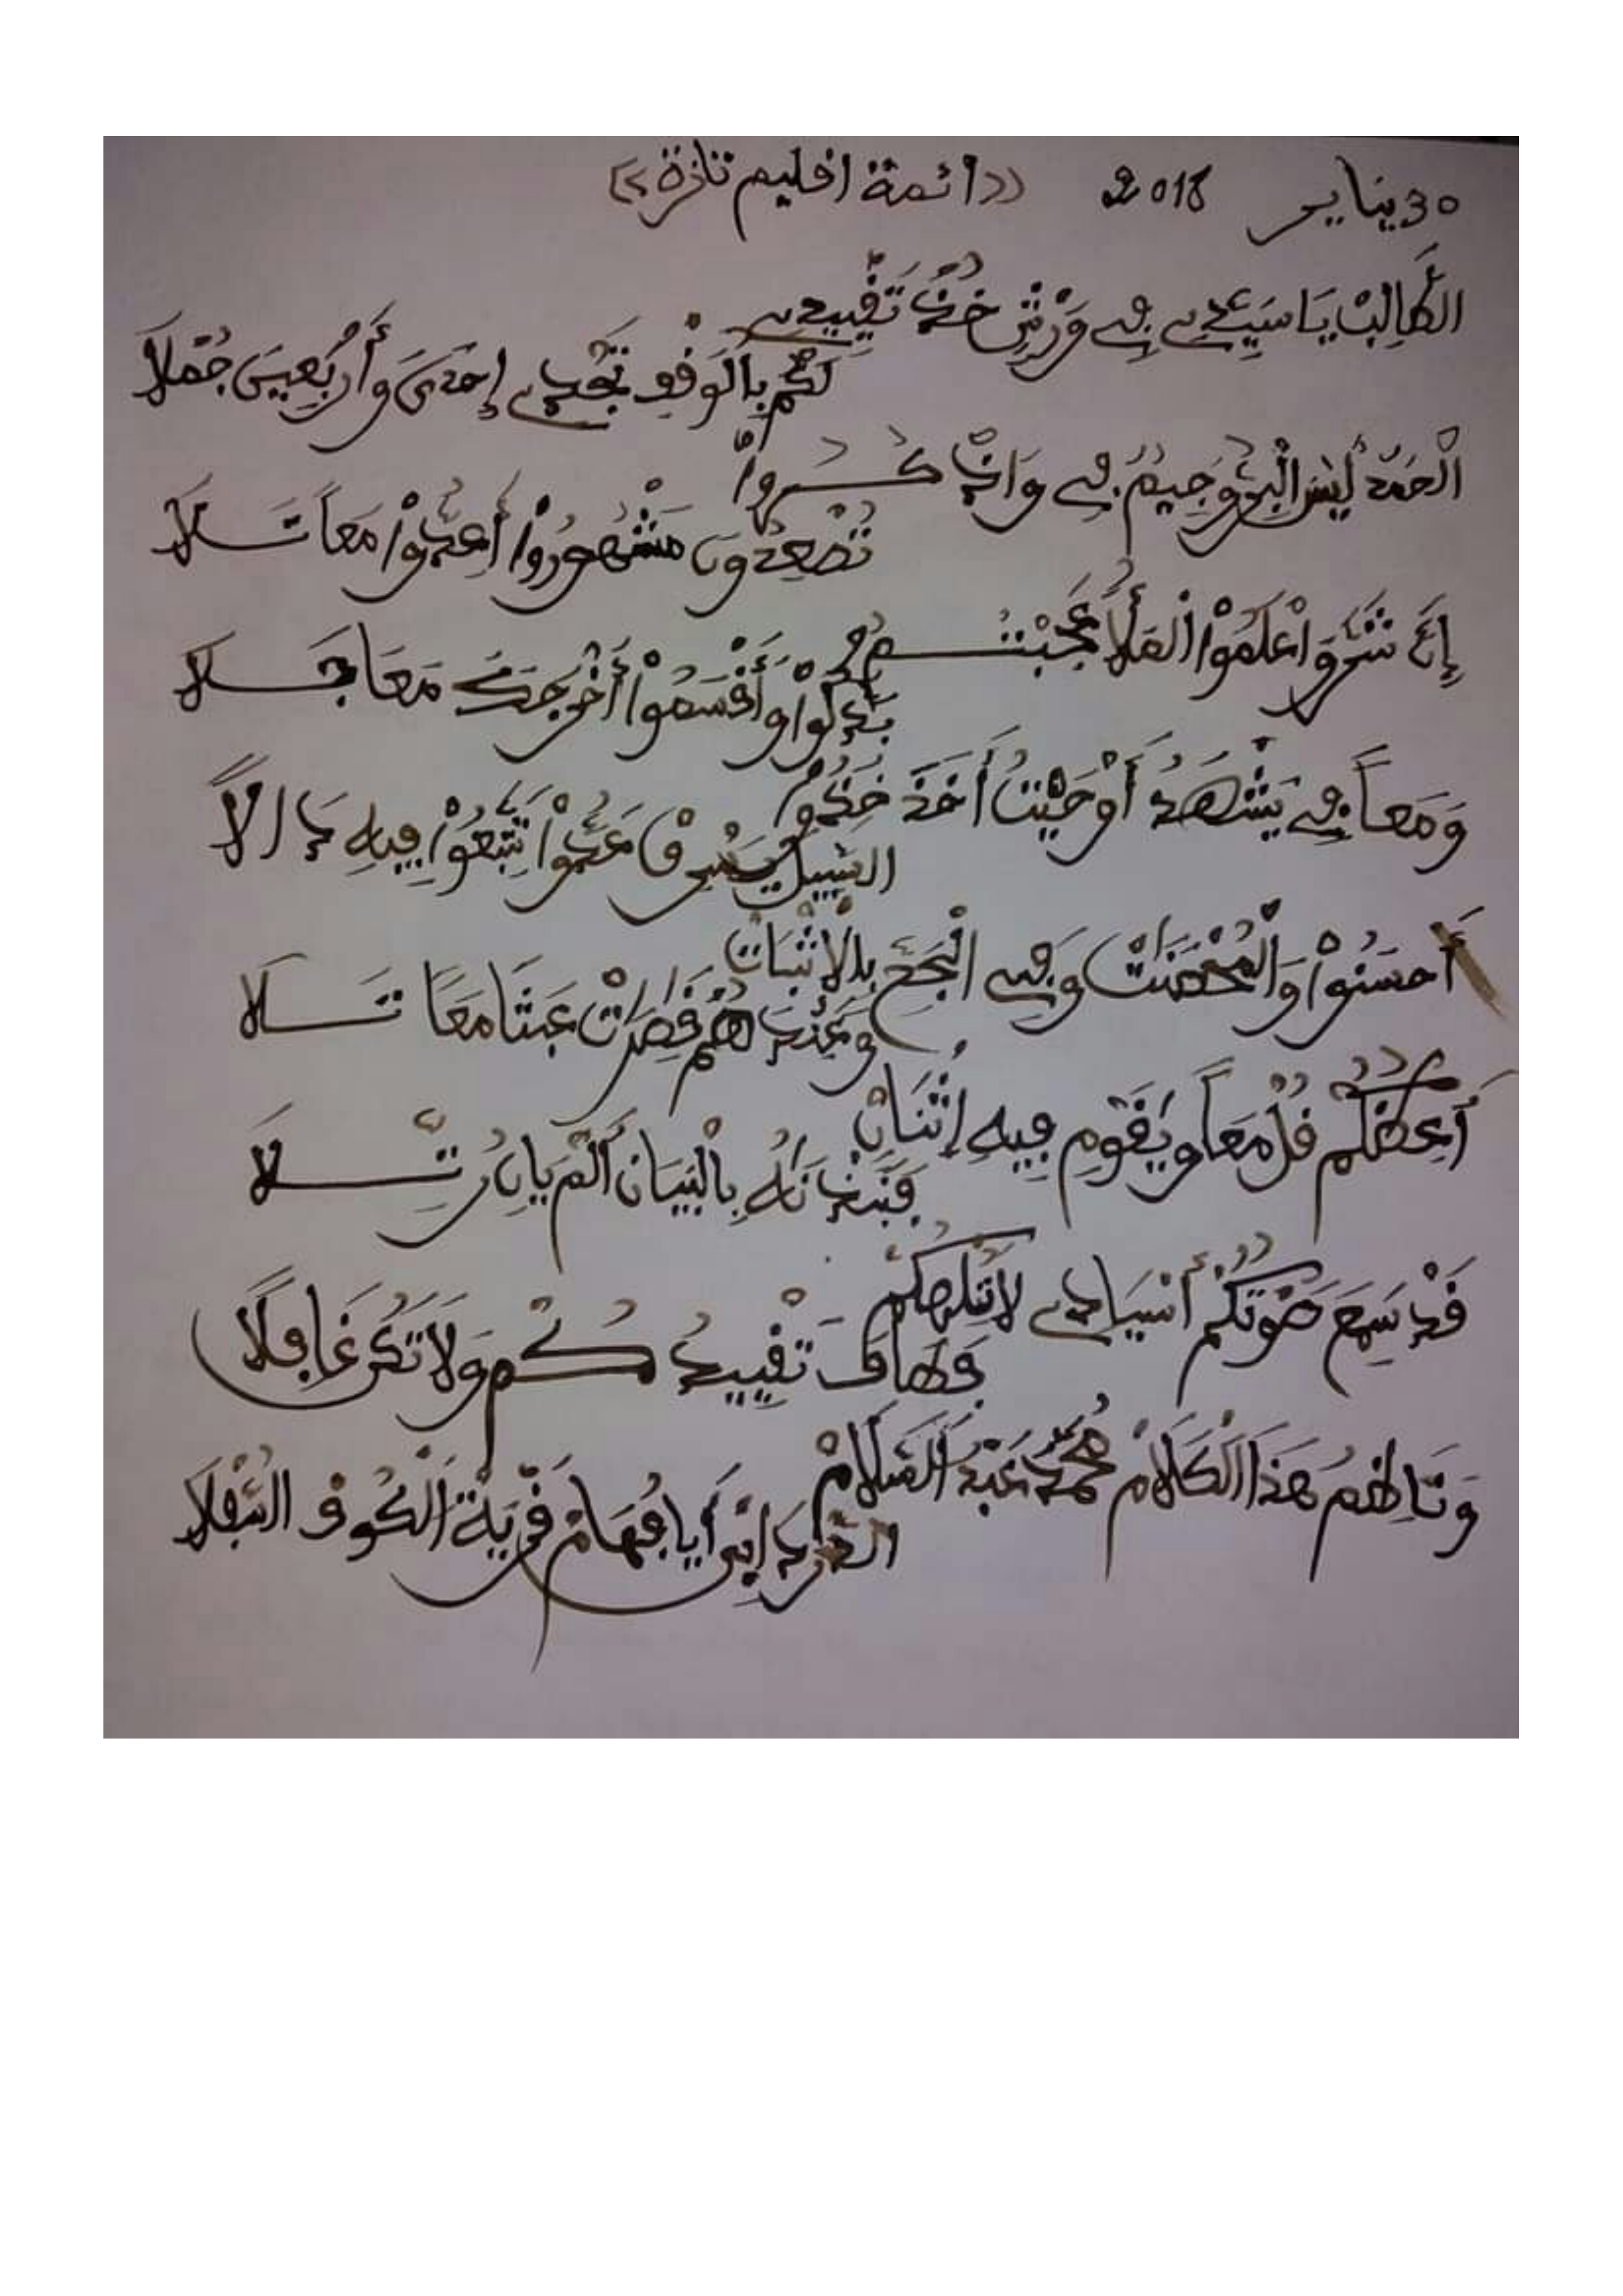 30 يناير 2018 «ائمة اقليم تازة»
الطَّالِبْ يَا سَيِّدِي فِي وَرْشٍ خُذْ تَقْيِيدِي
لَكُمْ بِالْوَقْفِ تَجْدِي إِحْدَى وَأَرْبَعِينَ جُمَلَا
الْحَمْدُ لَيْسَ الْبِرُّ وَجِيمُ فِي وَاذْكُرُوا
تُصْعِدُونَ مَشْهُورُ وَأَعِدُّوا مَعاً تَلَا
إِنَّ شَرَّ وَاعْلَمُوا الْمَلَأُ عَجِبْتُمْ
بَدَّلُوا وَأَقْسَمُوا أَخْرَجَكَ مَعَا جَلَا
وَمَعاً فِي يَشْهَدُ أَوْحَيْتُ أَخَذَ خُذْ
السَّبِيلُ يُسْرِقْ عَدُّوا تَتَّبِعُوا فِيهِ
أَحْسَنُوا وَالْمُحْصَنَتْ وَفِي الْحَجِّ بِالْاثْبَاتْ
وَعِنْدَهُمْ قَصِرَتْ عَبَثًا مَعًا تَلَا
أَعِظُكُمْ قُلْ مَعاً وَيَقَوْمِ فِيهِ إِثْنَانْ
فَنَبَذْنَاهُ بِالْبَيَانْ أَلَمْ يَانِ رَتِّلَا
قَدْ سَمِعَ صَوْتَكُمْ أَسْيَادِي لَا تُلْهِكُمْ
فَهَاكَ تَقْيِيدُكُمْ وَلَا تَكُنْ غَافِلًا
وَنَاظِمُ هَذَا الْكَلَامْ مُحَمَّدْ عَبْدُ السَّلَامْ
أَيَا فُهَامْ قَرْيَةْ الْكُوفْ السُّفْلَا